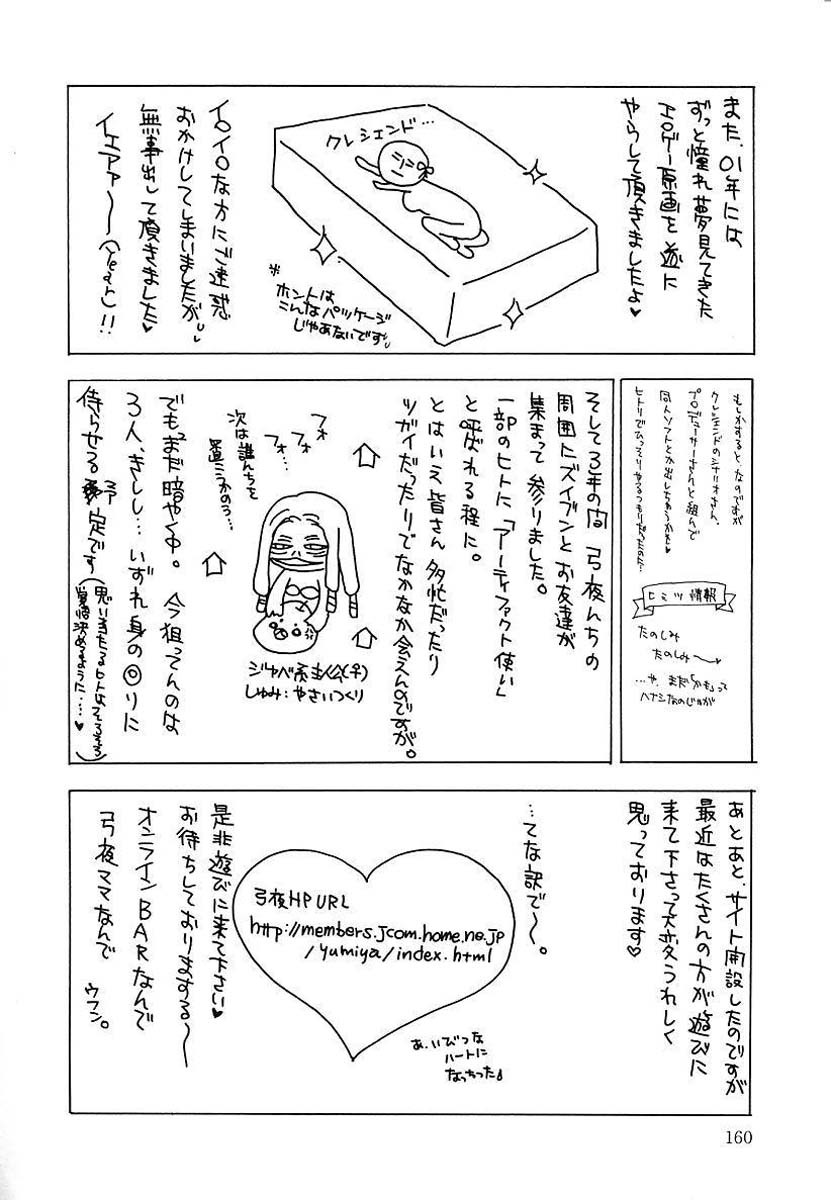 また、01年には
ずっと憧れ夢見てきた
エロゲー原画を遂に
やらして頂きましたよ♥
クレシェンド…
※
ホントは
こんなパッケージ
じゃあないです
イロイロな方にご迷惑
おかけしてしまいましたが、
無事出して頂きました♥
イェアァ〜〜(Yeah)!!
もしかすると、なのですが
クレシェンドのシナリオさん、
プロデューサーさんと組んで
同人ソフトとか出しちゃうかも♥
ヒトリでひっそりやるつもりだったのに…
ヒミツ情報
たのしみ
たのしみ〜
…や、まだ「かも」って
ハナシなのじゃが
そして3年の間 弓夜んちの
周囲にズイブンとお友達が
集まって参りました。
一部のヒトに「アーティファクト使い」
と呼ばれる程に。
とはいえ皆さん多忙だったり
ツガイだったりでなかなか会えんのですが。
フォ
フォ…
フォ…
次は誰んちを
置こうかのう…
ジャベ系主人公(♀)
しゅみ:やさいつくり
でもまだ暗やく中。今狙ってんのは
3人、きしし…いずれ身の回りに
侍らせる予定です
(思い当たるヒトはそろそろ
覚悟決めるように…♥)
あとあと、サイト開設したのですが
最近はたくさんの方が遊びに
来て下さって大変うれしく
思っております♥
…てな訳で〜。
弓夜HP URL
http://members.jcom.home.ne.jp
/yumiya/index.html
あ、いびつな
ハートに
なっちった
是非遊びに来て下さい♥
お待ちしておりまする〜
オンラインBARなんで
弓夜ママなんで
ウフン。
160